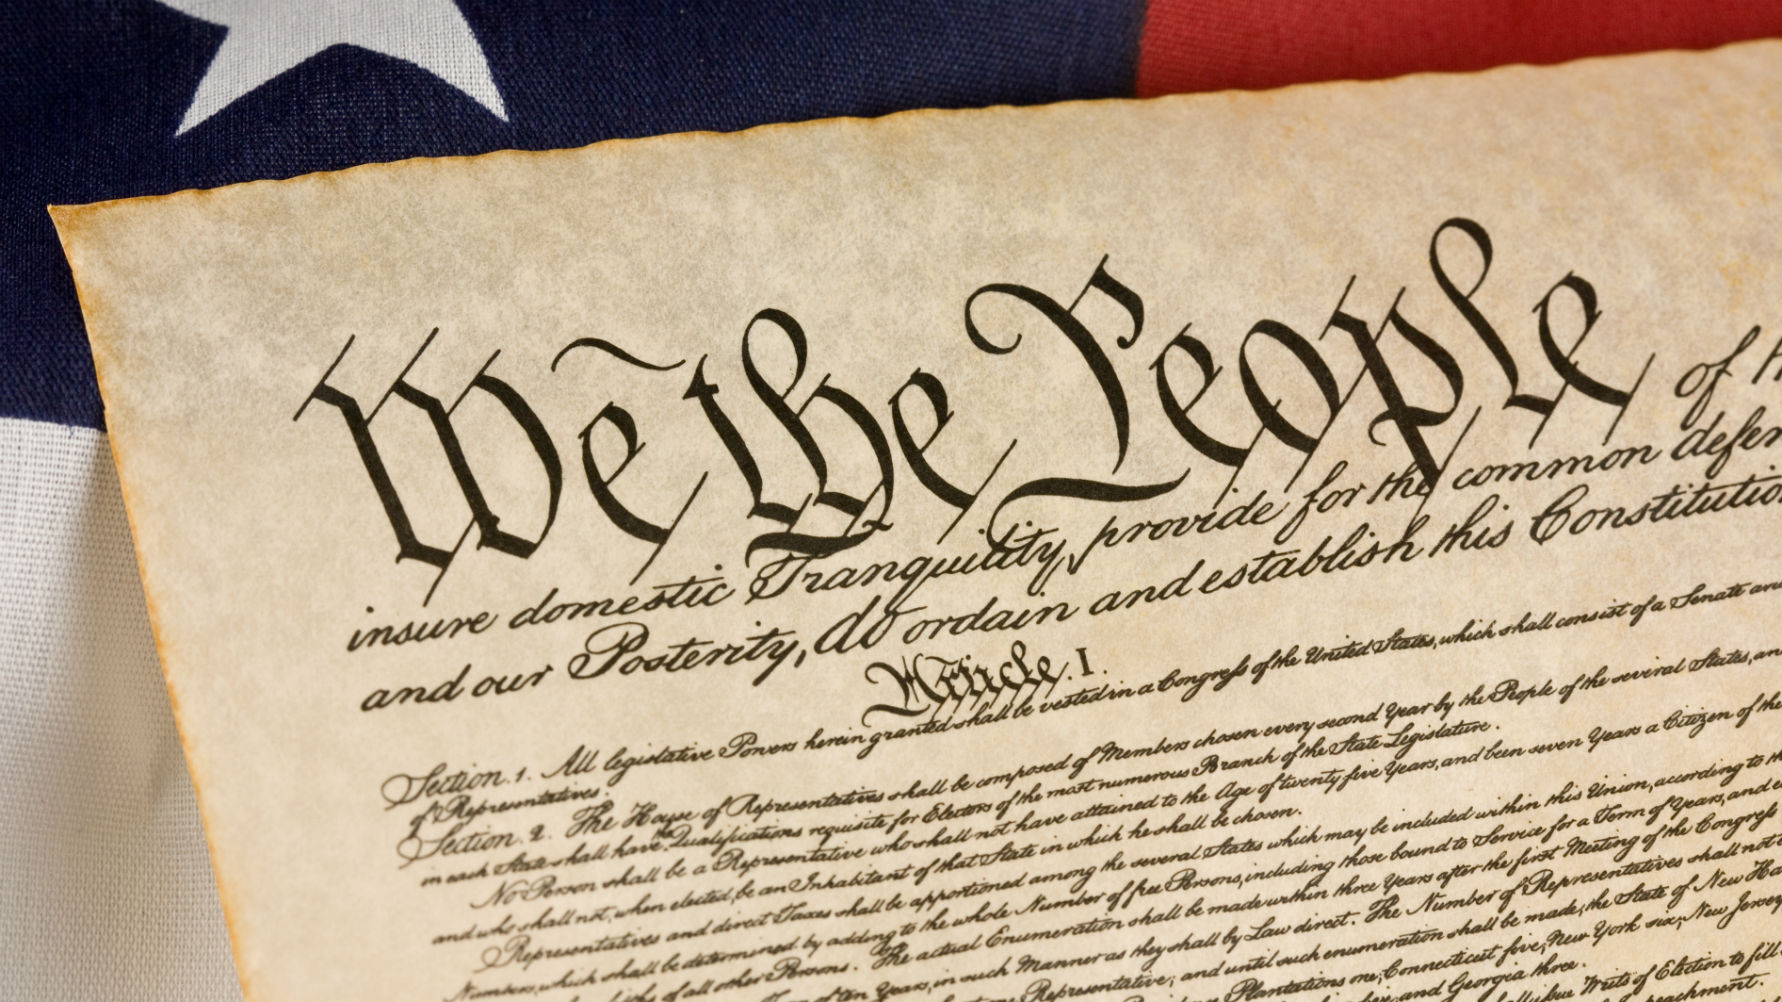 We the People of th
insure domestic Tranquility, provide for the common defen
and our Posterity, do ordain and establish this Constitutio
Article. I.
Section. 1. All legislative Powers herein granted shall be vested in a Congress of the United States, which shall consist of a Senate and
of Representatives.
Section. 2. The House of Representatives shall be composed of Members chosen every second Year by the People of the several States, an
in each State shall have the Qualifications requisite for Electors of the most numerous Branch of the State Legislature.
No Person shall be a Representative who shall not have attained to the Age of twenty five Years, and been seven Years a Citizen of the
and who shall not, when elected, be an Inhabitant of that State in which he shall be chosen.
Representatives and direct Taxes shall be apportioned among the several States which may be included within this Union, according to th
Numbers, which shall be determined by adding to the whole Number of free Persons, including those bound to Service for a Term of Years, and e
of all other Persons. The actual Enumeration shall be made within three Years after the first Meeting of the Congress
of ten Years, in such Manner as they shall by Law direct. The Number of Representatives shall not
Representative; and until such enumeration shall be made, the State of New Ha
Plantations one, Connecticut five, New-York six, New Jersey
and Georgia three.
Writs of Election to fill